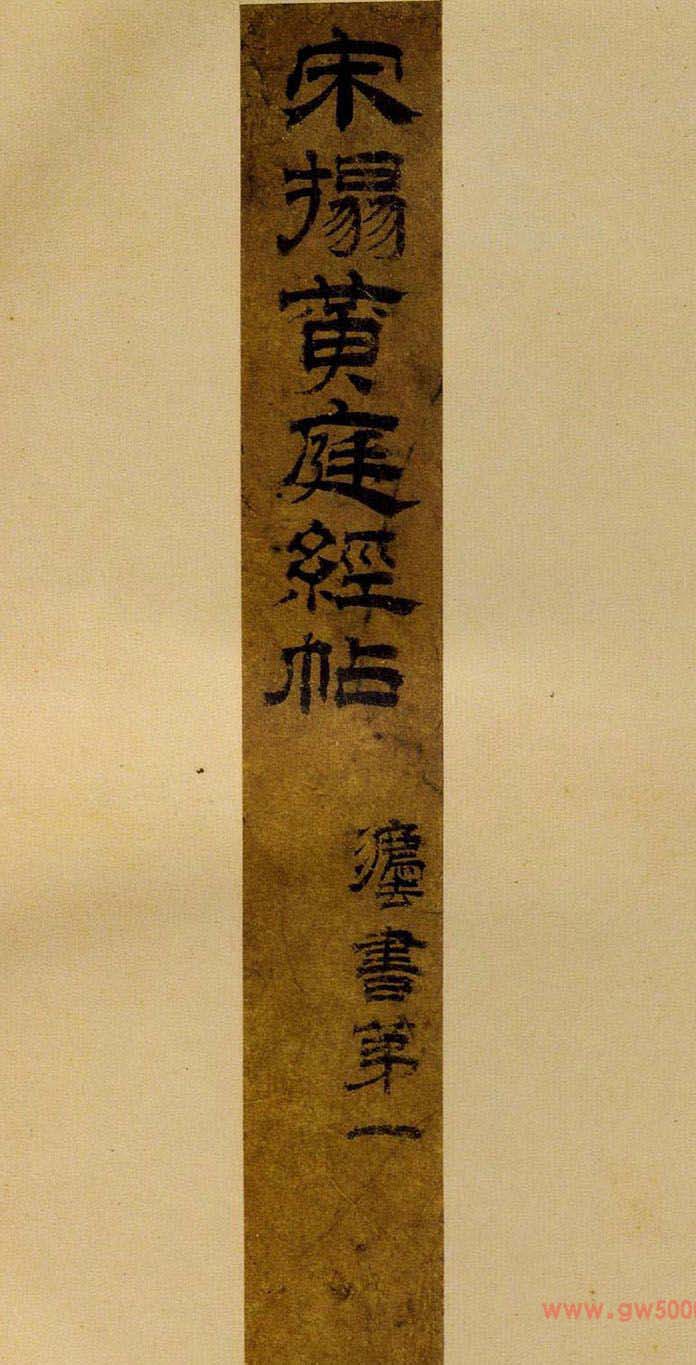 宋搨黃庭經帖
灋書第一
www.gw500